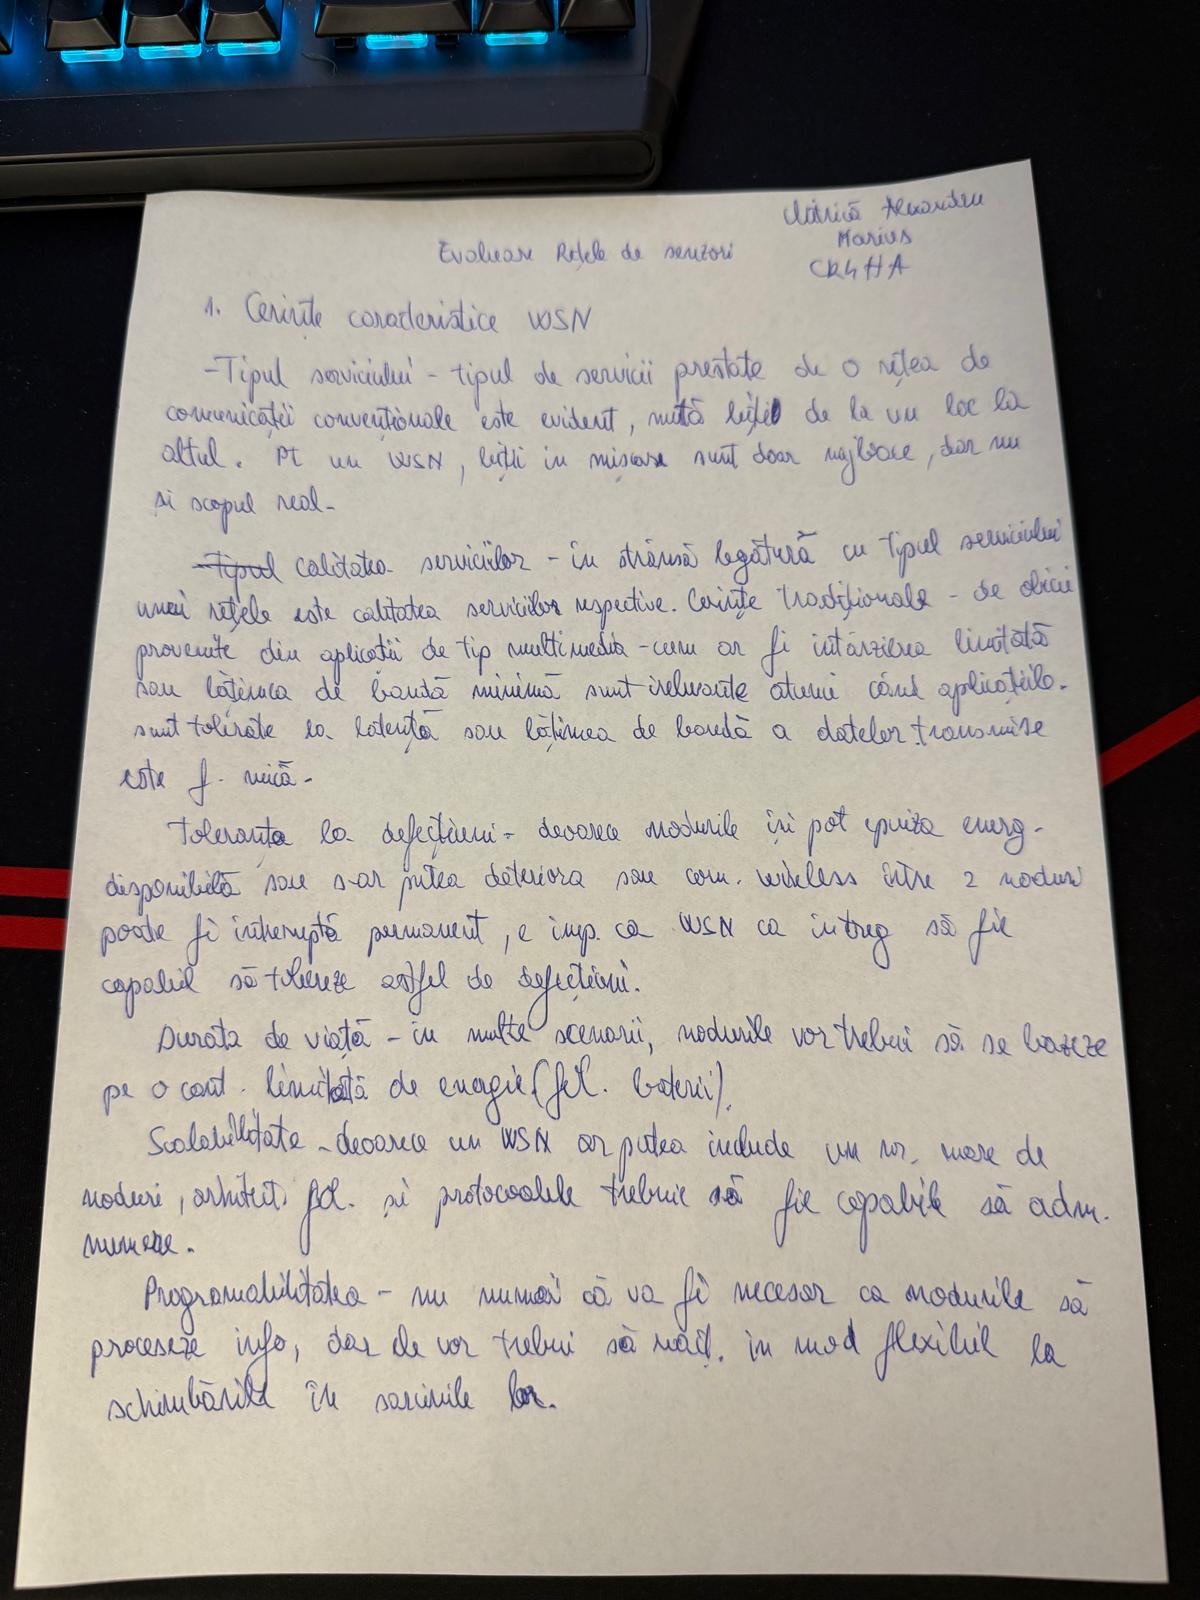 Alexandru
Marius
CR4HA
Evaluare Rețele de senzori
1. Cerințe caracteristice WSN
-Tipul serviciului - tipul de servicii prestate de o rețea de
comunicații convenționale este evident, mută biții de la un loc la
altul. Pt un WSN, biții in miscare sunt doar mijloace, dar nu
si scopul real-
Tipul calitatea serviciilor - in strânsă legătură cu tipul serviciului
unei rețele este calitatea serviciilor respective. Cerințe tradiționale - de obicei
provenite din aplicatii de tip multimedia - cum ar fi intârzierea limitată
sau lățimea de bandă minimă sunt irelevante atunci când aplicațiile
sunt tolerate la latență sau lățimea de bandă a datelor transmise
este f. mică-
Toleranța la defecțiuni - deoarece nodurile isi pot epuiza energ-
disponibilă sau s-ar putea deteriora sau com. wireless intre 2 noduri
poate fi intreruptă permanent, e imp. ca WSN ca intreg să fie
capabil să tolereze astfel de defecțiuni.
Durata de viață - in multe scenarii, nodurile vor trebui să se bazeze
pe o cant. limitată de energie (fol. baterii).
Scalabilitate - deoarece un WSN ar putea include un nr. mare de
noduri, arhitect. fol. și protocoalele trebuie să fie capabile să adm.
numere.
Programabilitatea - nu numai că va fi necesar ca nodurile să
proceseze info, dar ele vor trebui să reacț. in mod flexibil la
schimbările în sarcinile lor.